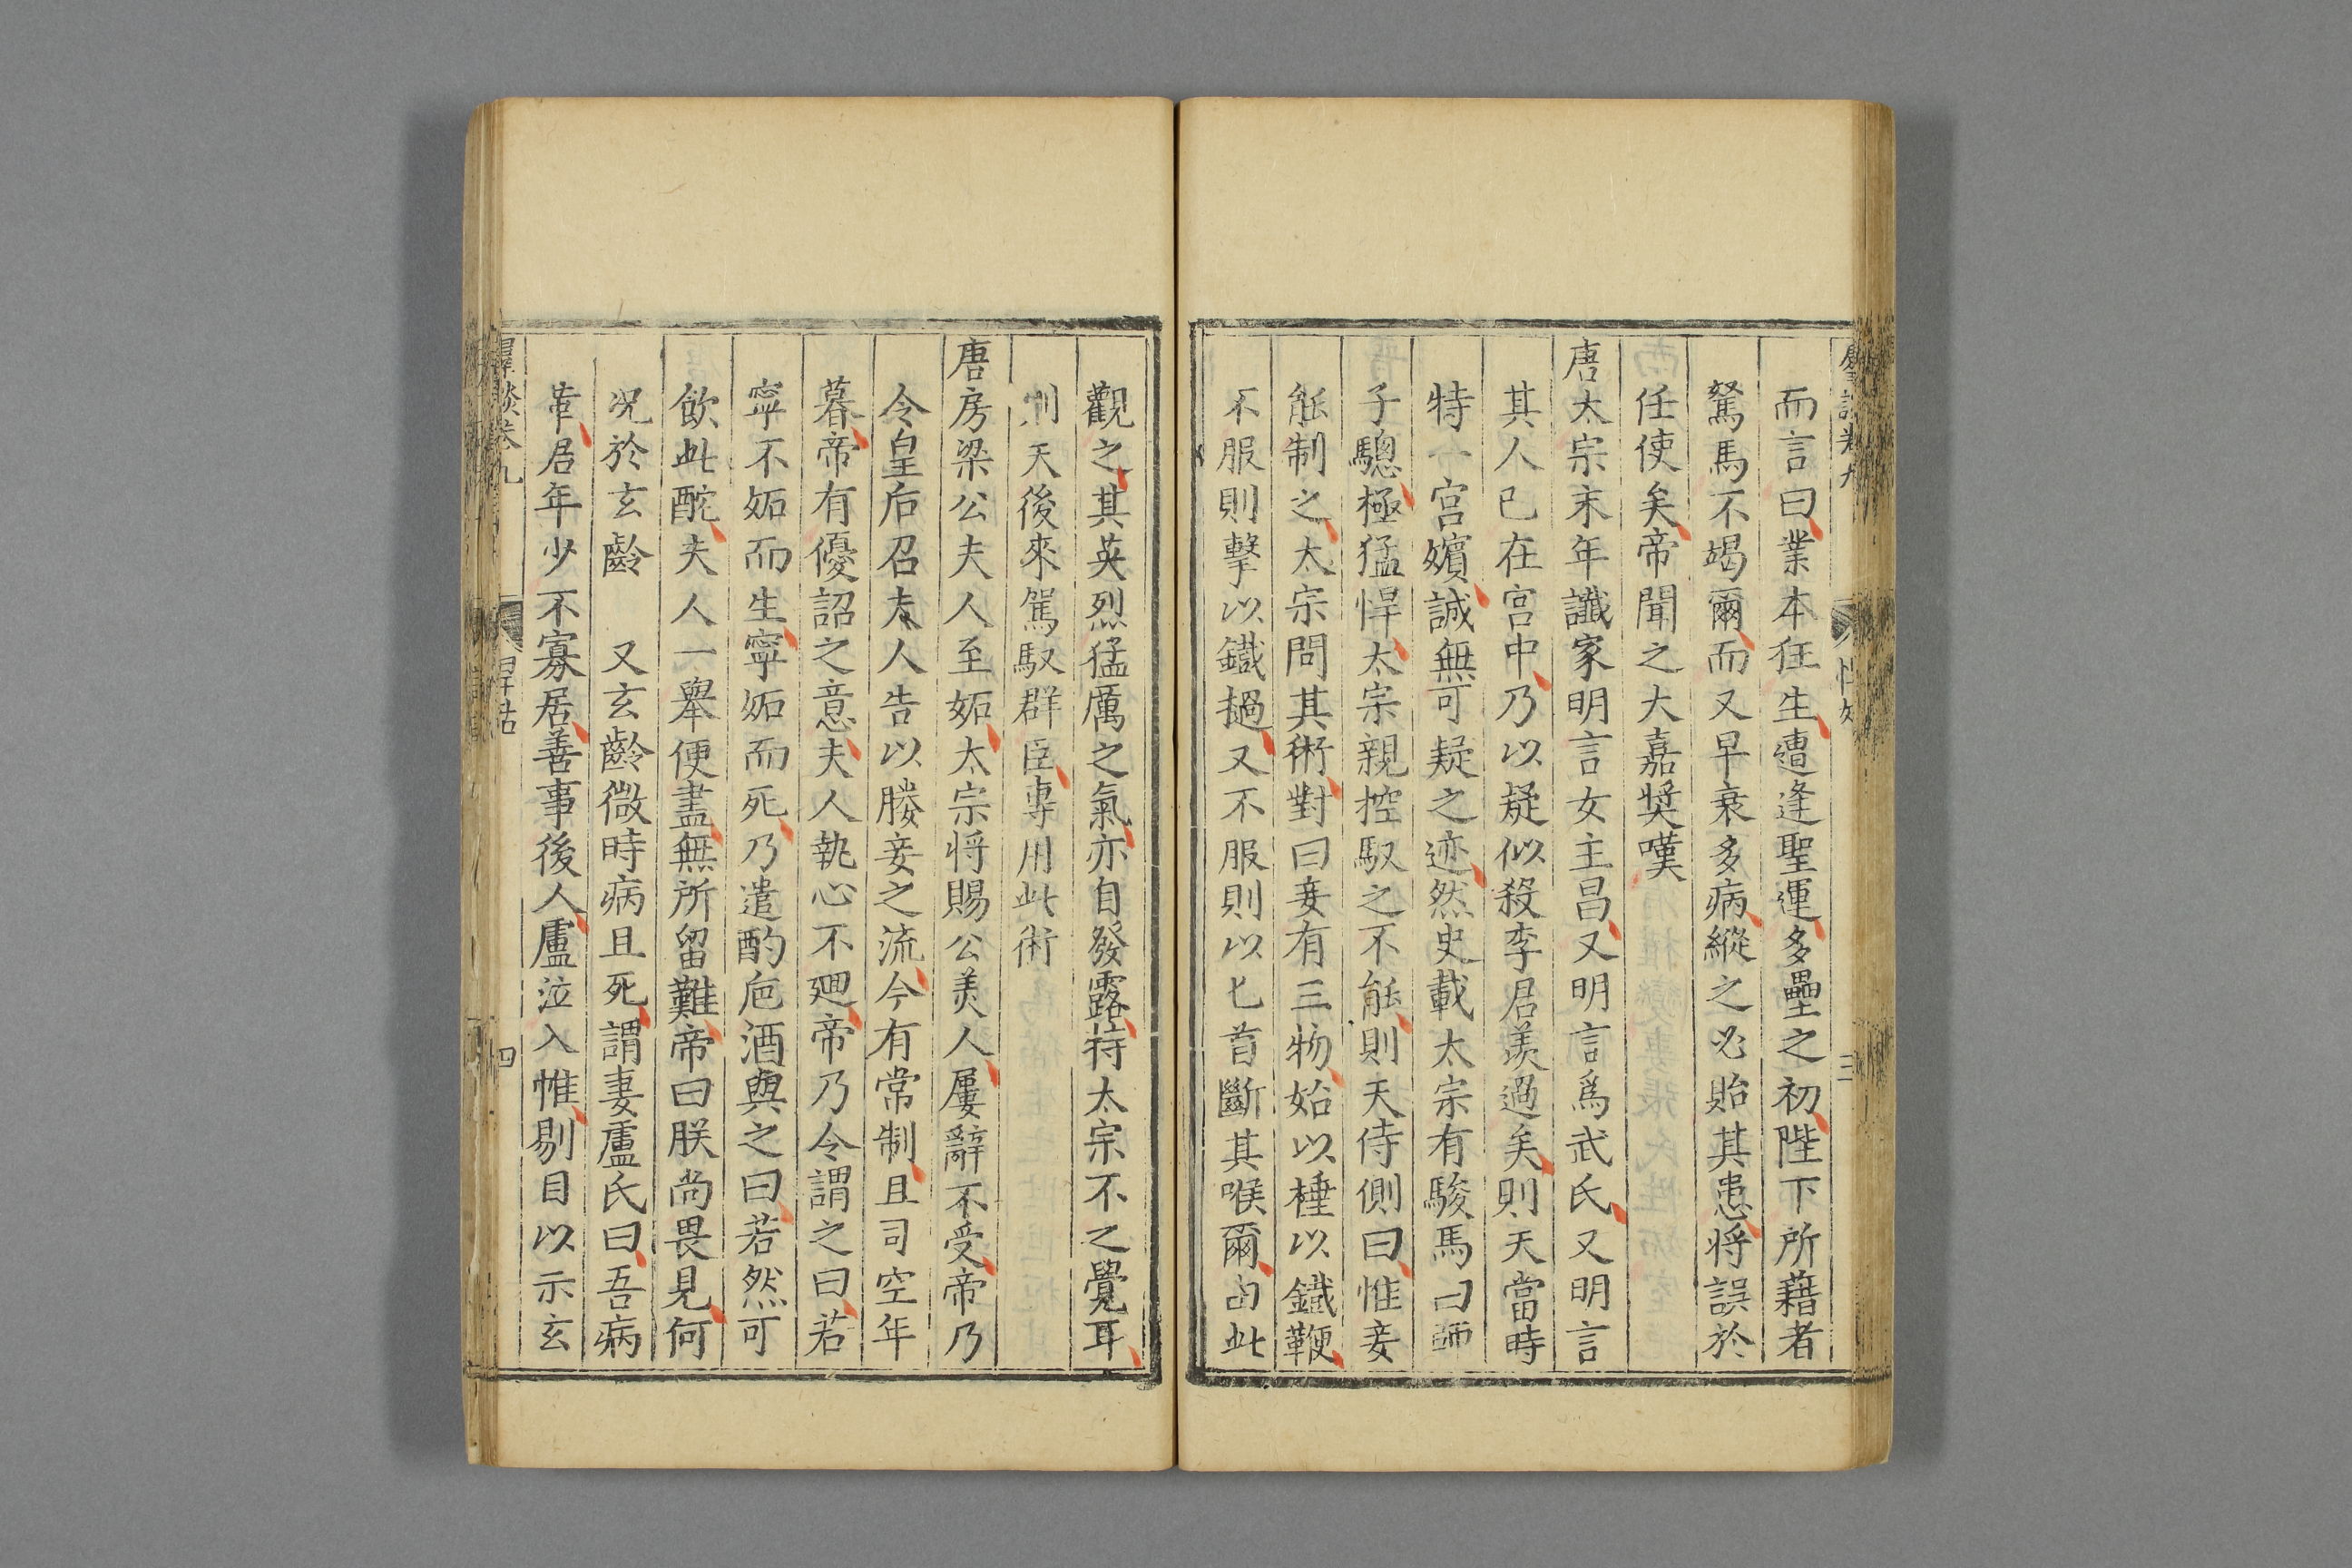 而言曰業本狂生遭逢聖運多壘之初陛下所藉者
駑馬不竭爾而又早衰多病縱之必貽其患將誤於
任使矣帝聞之大嘉奬嘆
唐太宗末年讖家明言女主昌又明言爲武氏又明言
其人已在宮中乃以疑似殺李君羨過矣則天當時
特一宮嬪誠無可疑之迹然史載太宗有駿馬曰師
子驄極猛悍太宗親控馭之不能則天侍側曰惟妾
能制之太宗問其術對曰妾有三物始以棰以鐵鞭
不服則擊以鐵撾又不服則以匕首斷其喉爾由此
觀之其英烈猛厲之氣亦自發露特太宗不之覺耳
則天後來駕馭群臣專用此術
唐房梁公夫人至妬太宗將賜公美人屢辭不受帝乃
令皇后召夫人告以媵妾之流今有常制且司空年
暮帝有優詔之意夫人執心不廻帝乃令謂之曰若
寧不妬而生寧妬而死乃遣酌巵酒與之曰若然可
飲此酖夫人一舉便盡無所留難帝曰朕尚畏見何
况於玄齡　又玄齡微時病且死謂妻盧氏曰吾病
革君年少不寡居善事後人盧泣入帷剔目以示玄
羣談卷九
四
三